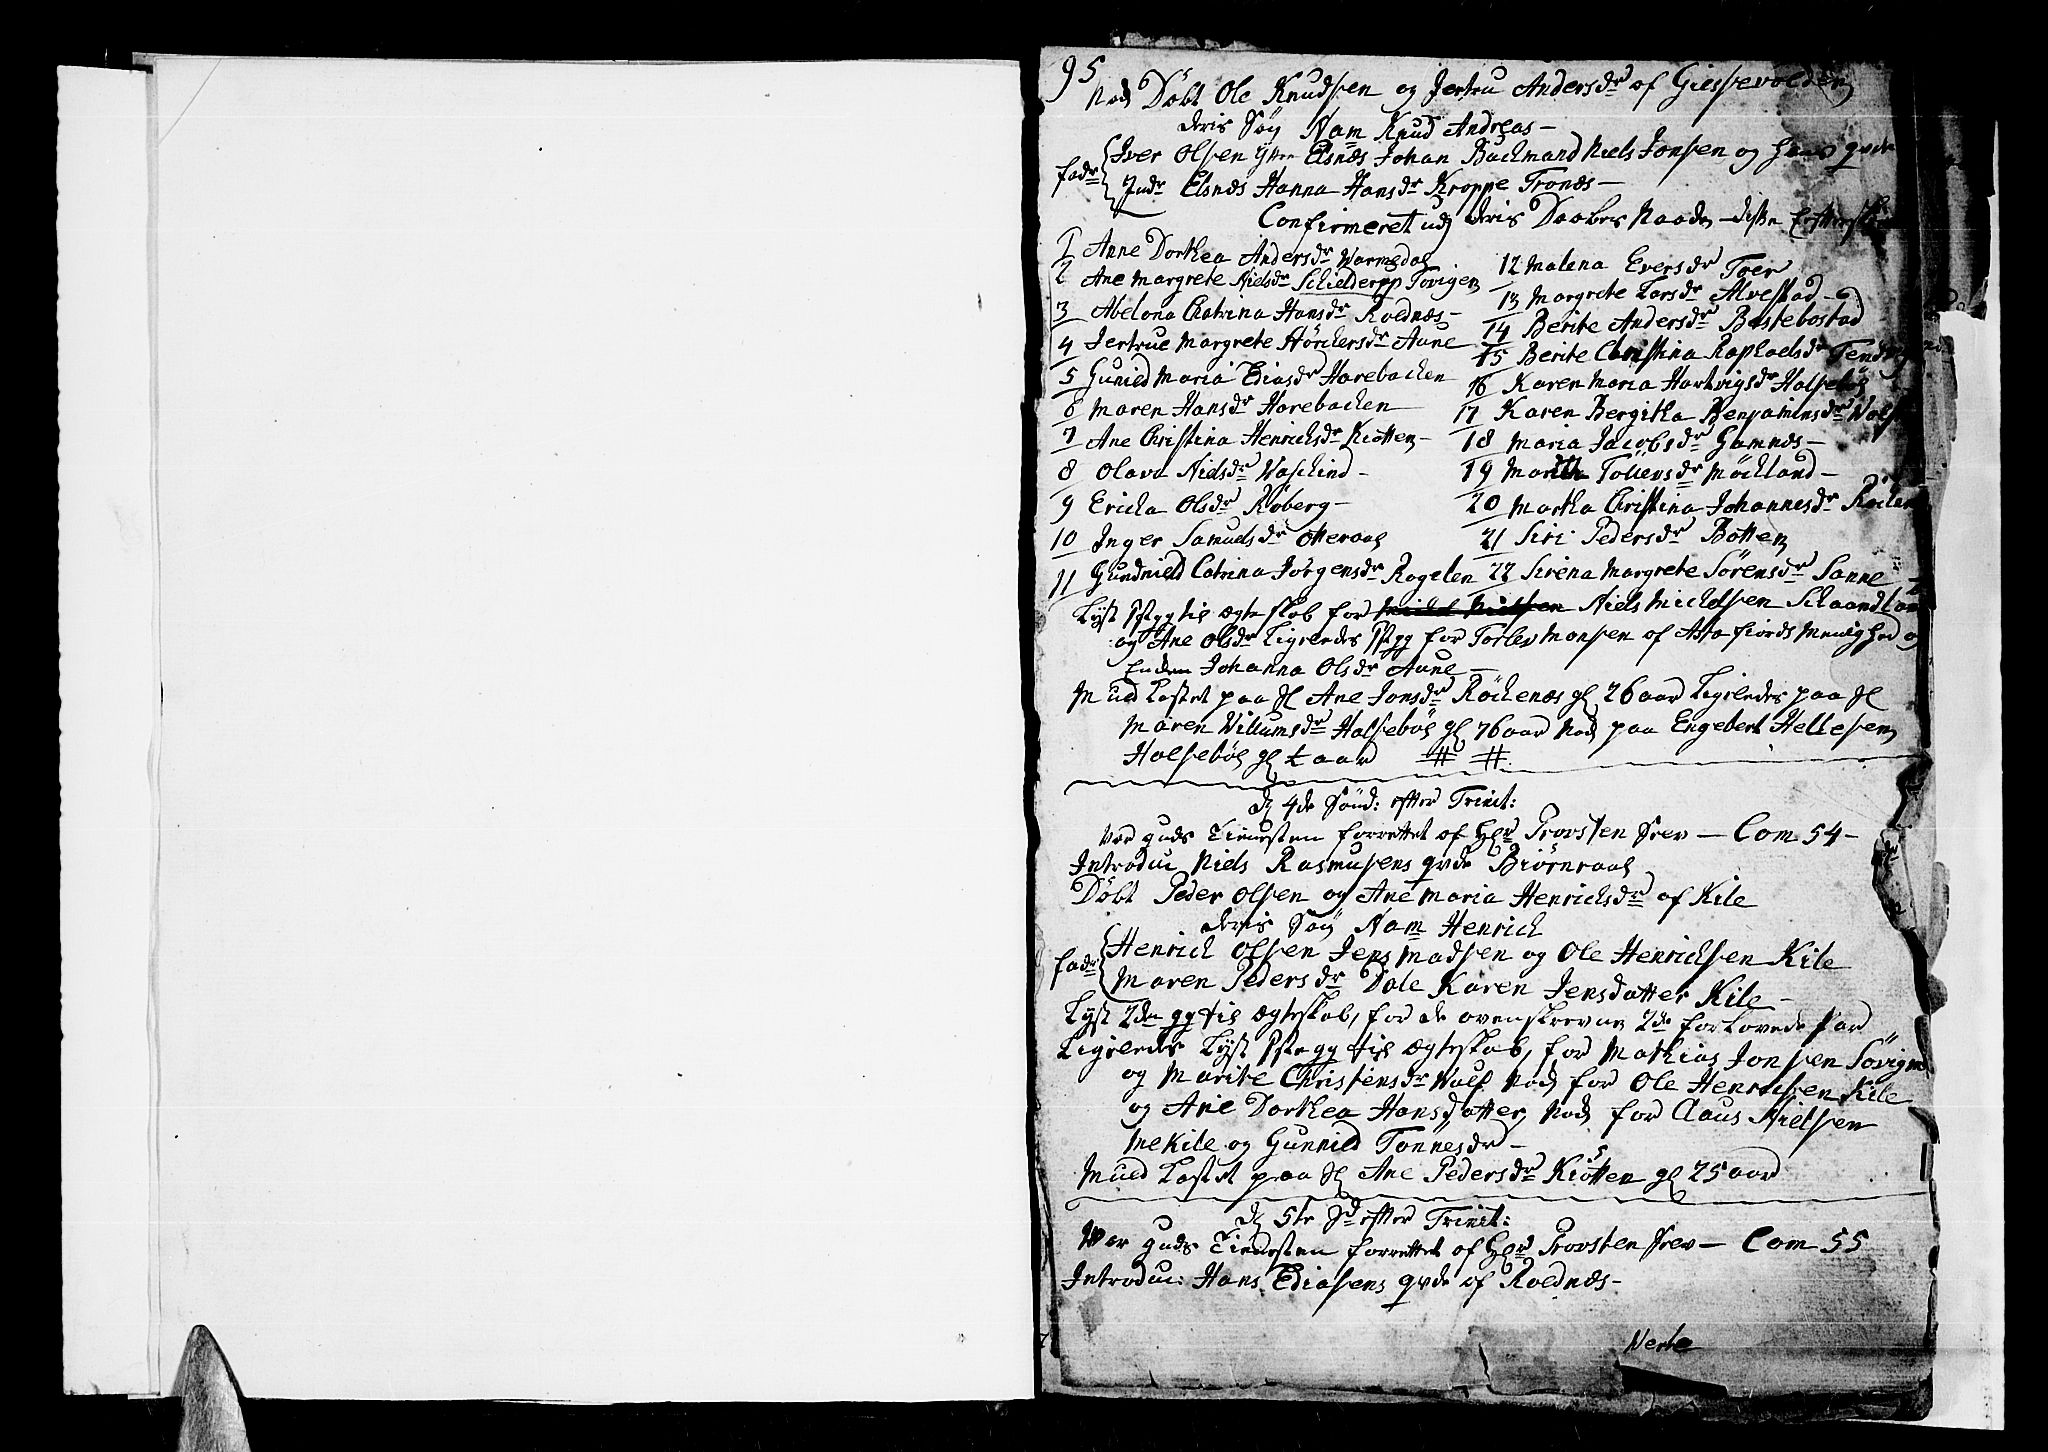 95
Nok Döbt Ole Knudsen og Jertru Andersdr af Giessevolden
deris Søn Nam Knud Andreas -
fadr Iver Olsen ytter Elsnæs Johan Buckmand Niels Jonsen og hans qvde
Indr Elsnæs Hanna Hansdr Kroppe Tronæs -
Confirmeret udj deris Daabes Naade - disse
1 Anne Dorthea Andersdr Varmedal
2 Ane Margrete Nielsdr Schielderpp Tovigen
3 Abelona Chatrina Hansdr Roldnæs -
4 Jertrue Margrete Störchersdr Aune
5 Gunild Maria Ediasdr Harebacken
6 Maren Hansdr Harebacken
7 Ane Christina Henrichsdr Kiötten -
8 Olava Nielsdr Vaschind -
9 Ericha Olsdr Röberg -
10 Inger Samuelsdr Otteraae
11 Gundnield Catrina Jörgensdr Rogelen
12 Malena Eversdr Toer
13 Margrete Larsdr Alvestad -
14 Berite Andersdr Bastebostad
15 Berite Christina Raphaelsdr
16 Karen Maria Hartvigsdr Halseböe
17 Karen Bergitha Benjaminsdr
18 Maria Jacobsdr Gamnæs -
19 Tollevsdr Möckland -
20 Martha Christina Johannesdr
21 Siri Pedersdr Botten
22 Sirena Margrete Sörensdr Sanne
Lyst 1ste gg til ægteskab for Michel Nielsen Niels Michelsen
og Ane Olsdr Ligeledes 1ste gg for Torlev Monsen af Astafiords Menighed
Enden Johanna Olsdr Aune -
Muld kastet paa Sl Ane Jonsdr Röckenæs gl 26 aar Ligeledes paa Sl
Maren Villumsdr Halseböe gl 76 aar Nok paa Engebert Hellesen
Halseböe gl t aar # #
D 4de Sönd: efter Trinit:
Var guds Tienesten forrettet af Hr Provsten Frev - Com 54 -
Introduc Niels Rasmusens qvde Biörnraae
Döbt Peder Olsen og Ane Maria Henrichsdr af Kile
deris Søn Nam Henrich
fadr Henrich Olsen Jens Madsen og Ole Henrichsen Kile
Maren Pedersdr Dale Karen Jensdatter Kile -
Lyst 2den gg til ægteskab, for de ovenskrevne 2de forlovede Par
Ligeledes Lyst 1ste gg til ægteskab, for Mathias Jonsen
og Marite Christensdr Valf Nok for Ole Henrichsen Kile
og Ane Dorthea Hansdatter Nok for Claus Nielsen
Mekile og Gunnild Tönnesdr -
Muld kastet paa Sl Ane Pedersdr Kiötten gl 25 aar
D 5te Sd efter Trinit:
War guds Tienesten forrettet af Hr Provsten Frev - Com 55
Introduc: Hans Ediasens qvde af Roldnæs -
Verte